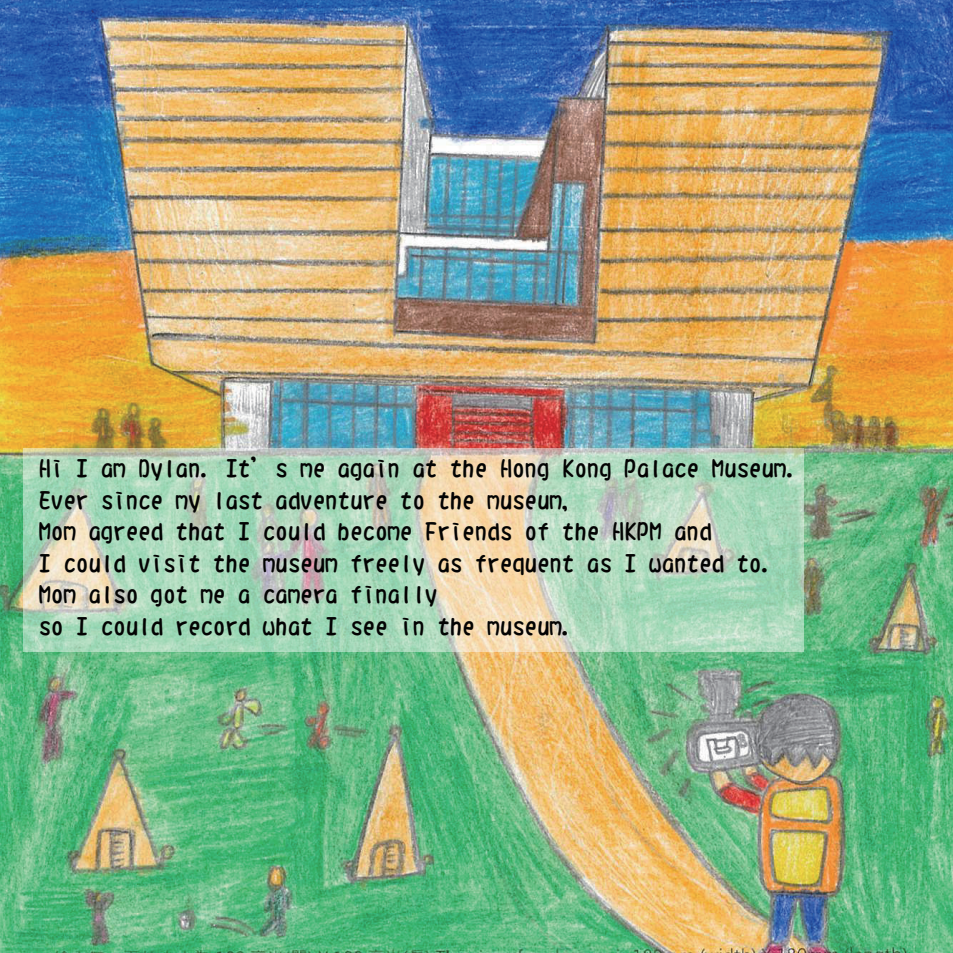 Hi I am Dylan. It’s me again at the Hong Kong Palace Museum.
Ever since my last adventure to the museum,
Mom agreed that I could become Friends of the HKPM and
I could visit the museum freely as frequent as I wanted to.
Mom also got me a camera finally
so I could record what I see in the museum.
(width) X 180mm (length)